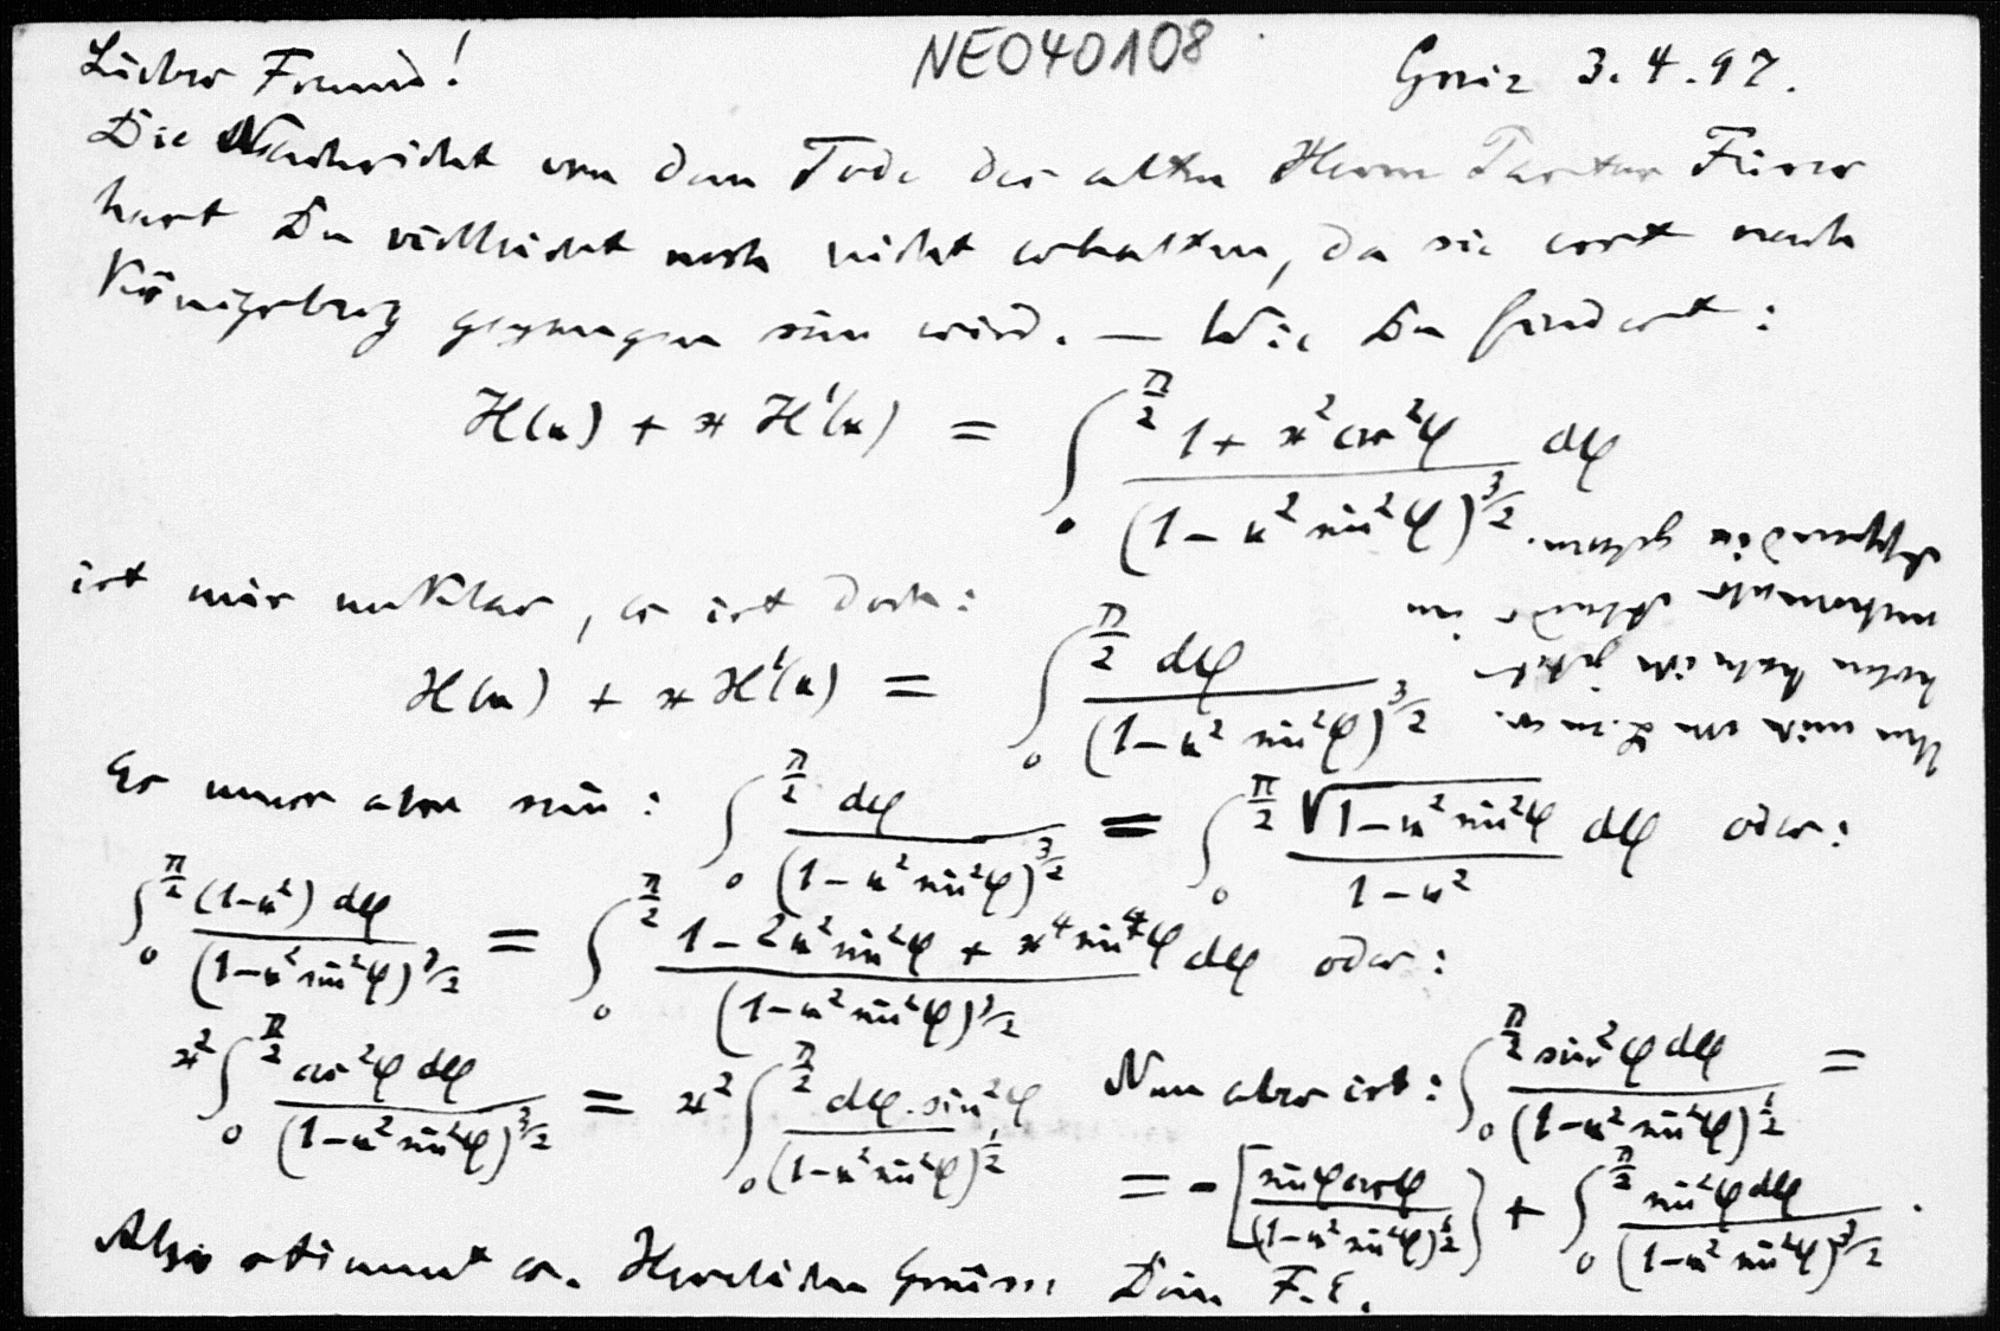 NE040108
Lieber Freund! Greiz 3.4.97.
Die Nachricht von dem Tode des alten Herrn Fürer
hast Du vielleicht noch nicht erhalten, da sie erst nach
Königsberg gegangen sein wird. — Wie Du findest:
H(κ) + κ H'(κ) = ∫₀^{π/2} (1 + κ² cos²φ) / (1 − κ² sin²φ)^{3/2} dφ
ist mir unklar, es ist doch:
H(κ) + κ H'(κ) = ∫₀^{π/2} dφ / (1 − κ² sin²φ)^{3/2}
Es muss also sein: ∫₀^{π/2} dφ / (1 − κ² sin²φ)^{3/2} = ∫₀^{π/2} √(1 − κ² sin²φ) / (1 − κ²) dφ oder:
∫₀^{π/2} (1 − κ²) dφ / (1 − κ² sin²φ)^{3/2} = ∫₀^{π/2} (1 − 2κ² sin²φ + κ⁴ sin⁴φ) / (1 − κ² sin²φ)^{3/2} dφ oder:
κ² ∫₀^{π/2} cos²φ dφ / (1 − κ² sin²φ)^{3/2} = κ² ∫₀^{π/2} dφ · sin²φ / (1 − κ² sin²φ)^{1/2} Nun aber ist: ∫₀^{π/2} sin²φ dφ / (1 − κ² sin²φ)^{1/2} =
= − [sinφ cosφ / (1 − κ² sin²φ)^{1/2}] + ∫₀^{π/2} sin²φ dφ / (1 − κ² sin²φ)^{3/2} .
Also stimmt es. Herzlichen Gruss Dein F.E.
Um mich von
holen habe ich
wieder im
Appendix gelesen.